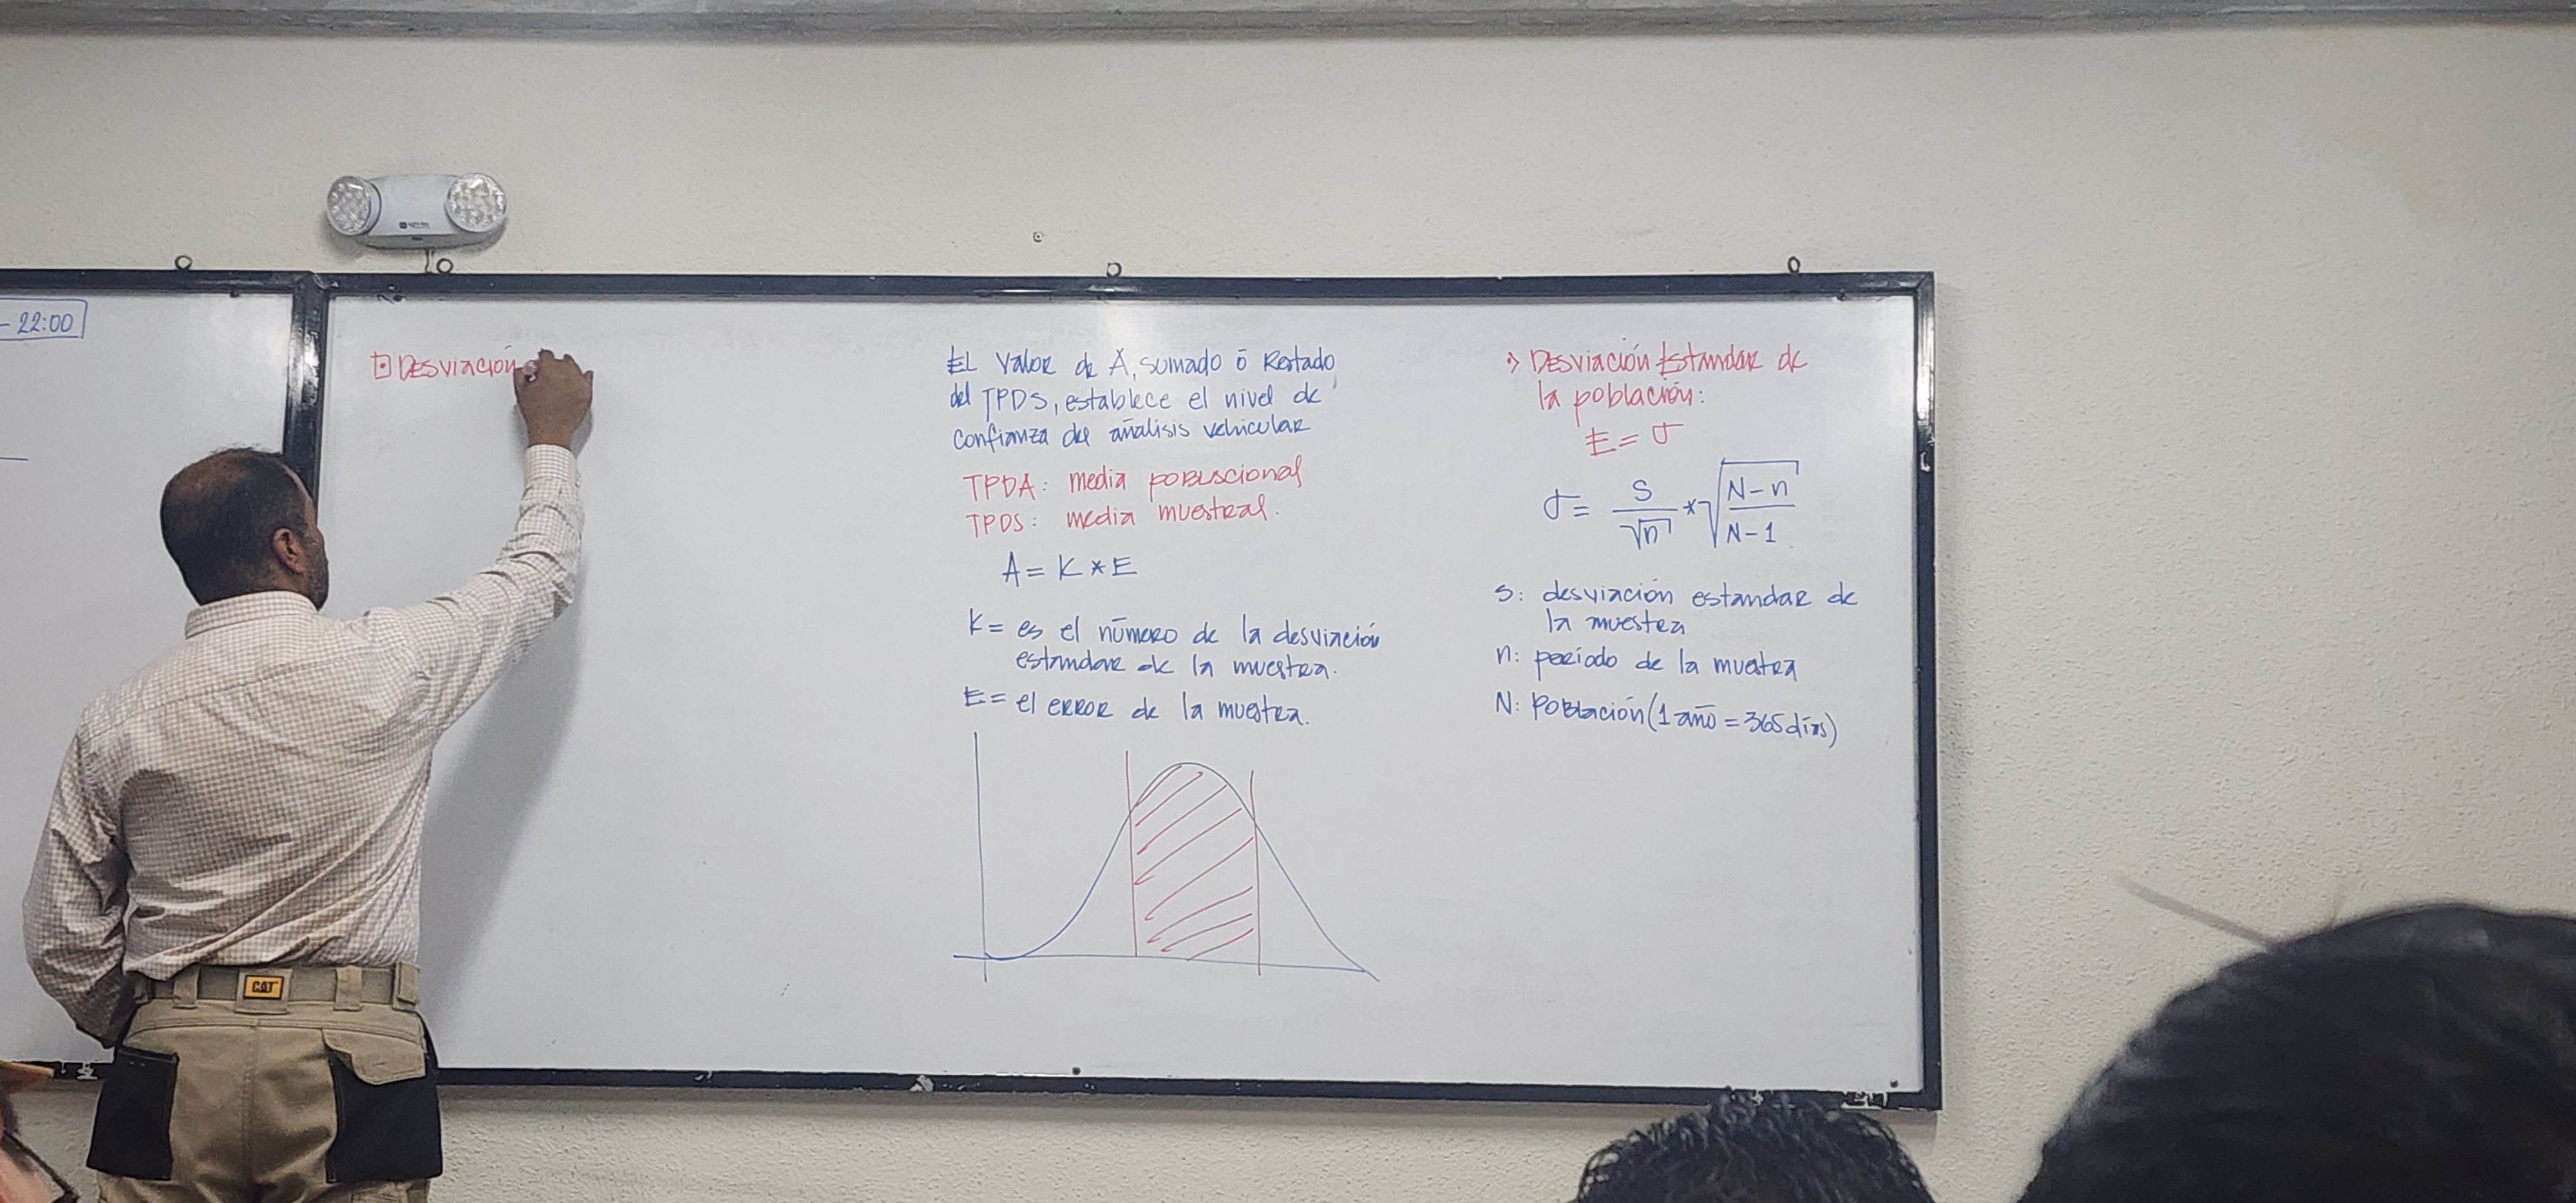 - 22:00
Desviación
El valor de A, sumado ó Restado
del TPDS, establece el nivel de
confianza del análisis vehicular
TPDA: media poblacional
TPDS: media muestral.
A = K * E
K = es el número de la desviación
estandar de la muestra.
E = el error de la muestra.
Desviación Estandar de
la población:
E = σ
σ = S / √n * √(N-n / N-1)
S: desviación estandar de
la muestra
n: período de la muestra
N: Población (1 año = 365 días)
CAT